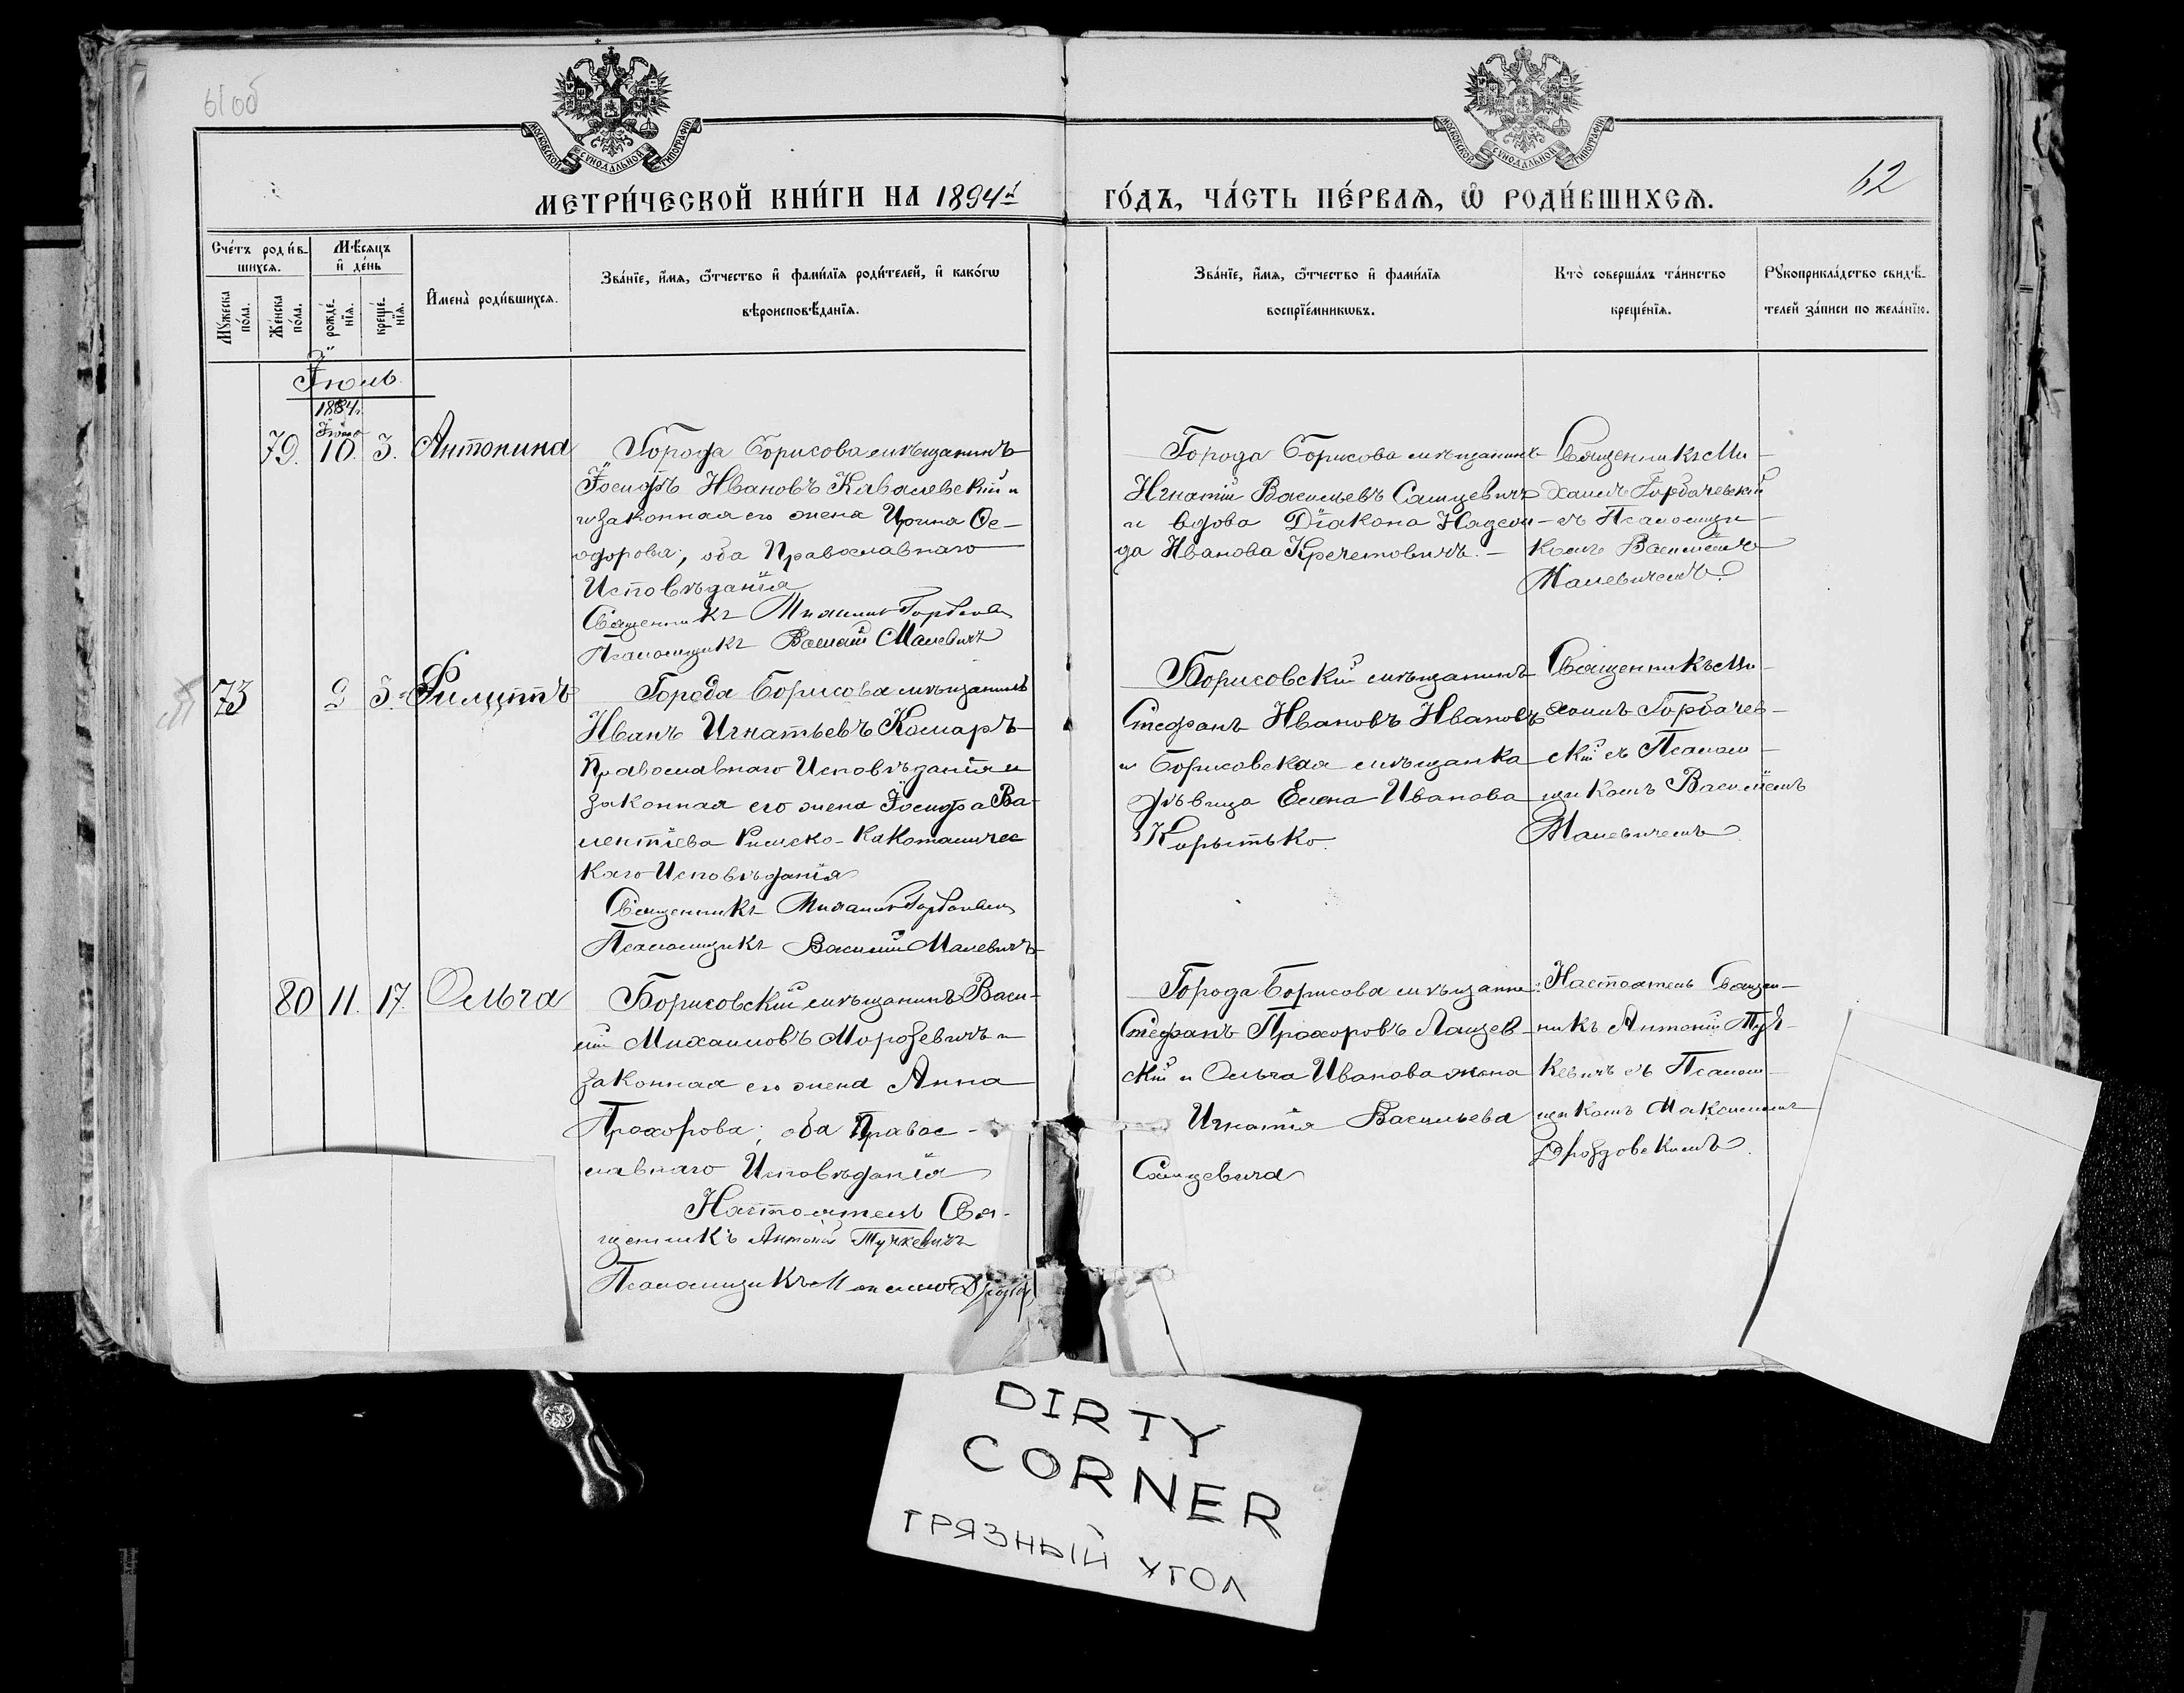 61об
МОСКОВСКОЙ СѴНОДАЛЬНОЙ ТИПОГРАФІИ
МОСКОВСКОЙ СѴНОДАЛЬНОЙ ТИПОГРАФІИ
62
МЕТРИ́ЧЕСКОЙ КНИ́ГИ НА 1894й
ГО́ДЪ, ЧА́СТЬ ПЕ́РВАѦ, Ѡ҆ РОДИ́ВШИХСѦ.
Сче́тъ роди́в-
шихсѧ.
Мꙋ́жеска
по́ла.
Же́нска
по́ла.
Мѣ́сѧцъ
и҆ де́нь
рожде́-
нїѧ.
креще́-
нїѧ.
И҆мена̀ роди́вшихсѧ.
Зва́нїе, и҆́мѧ, ѻ҆́тчество и҆ фами́лїѧ роди́телей, и҆ како́гѡ
вѣроисповѣ́данїѧ.
Зва́нїе, и҆́мѧ, ѻ҆́тчество и҆ фами́лїѧ
воспрїе́мникѡвъ.
Кто̀ соверша́лъ та́инство
креще́нїѧ.
Рꙋкоприкла́дство свидѣ́-
телей за́писи по жела́нїю.
Іюль
1884.
Іюня
79. 10. 3. Антонина
Города Борисова мѣщанинъ
Іосифъ Ивановъ Ковалевскій и
законная его жена Ирина Ѳе-
одорова, оба Православнаго
Исповѣданія
Священникъ Михаилъ Горбачев
Псаломщикъ Василій Малевичъ
Города Борисова мѣщанинъ
Игнатій Васильевъ Самцевичъ
и вдова Діакона Надеж-
да Иванова Кречетовичъ.
Священникъ Ми-
хаилъ Горбачевскій
съ Псаломщи-
комъ Василіемъ
Малевичемъ.
73 9 3. Филиппъ
Города Борисова мѣщанинъ
Иванъ Игнатьевъ Комаръ
Православнаго Исповѣданія и
законная его жена Іосифа Ва-
лентіева Римско-Католичес
каго Исповѣданія
Священникъ Михаилъ Горбачевск
Псаломщикъ Василій Малевичъ
Борисовскій мѣщанинъ
Стефанъ Ивановъ Ивановъ
и Борисовская мѣщанка
дѣвица Елена Иванова
Корытько.
Священникъ Ми-
хаилъ Горбачев-
скій съ Псалом-
щикомъ Василіемъ
Малевичемъ
80 11. 17. Ольга
Борисовскій мѣщанинъ Васи-
лій Михаиловъ Морозевичъ и
законная его жена Анна
Прохорова; оба Правос-
лавнаго Исповѣданія
Настоятель Свя-
щенникъ Антоній Тучкевичъ
Псаломщикъ
Города Борисова мѣщане:
Стефанъ Прохоровъ Лащев-
скій и Ольга Иванова жена
Игнатія Васильева
Самцевича
Настоятель Священ-
никъ Антоній Туч-
кевичъ съ Псалом-
щикомъ Максимомъ
Дроздовскимъ.
DIRTY
CORNER
ГРЯЗНЫЙ УГОЛ